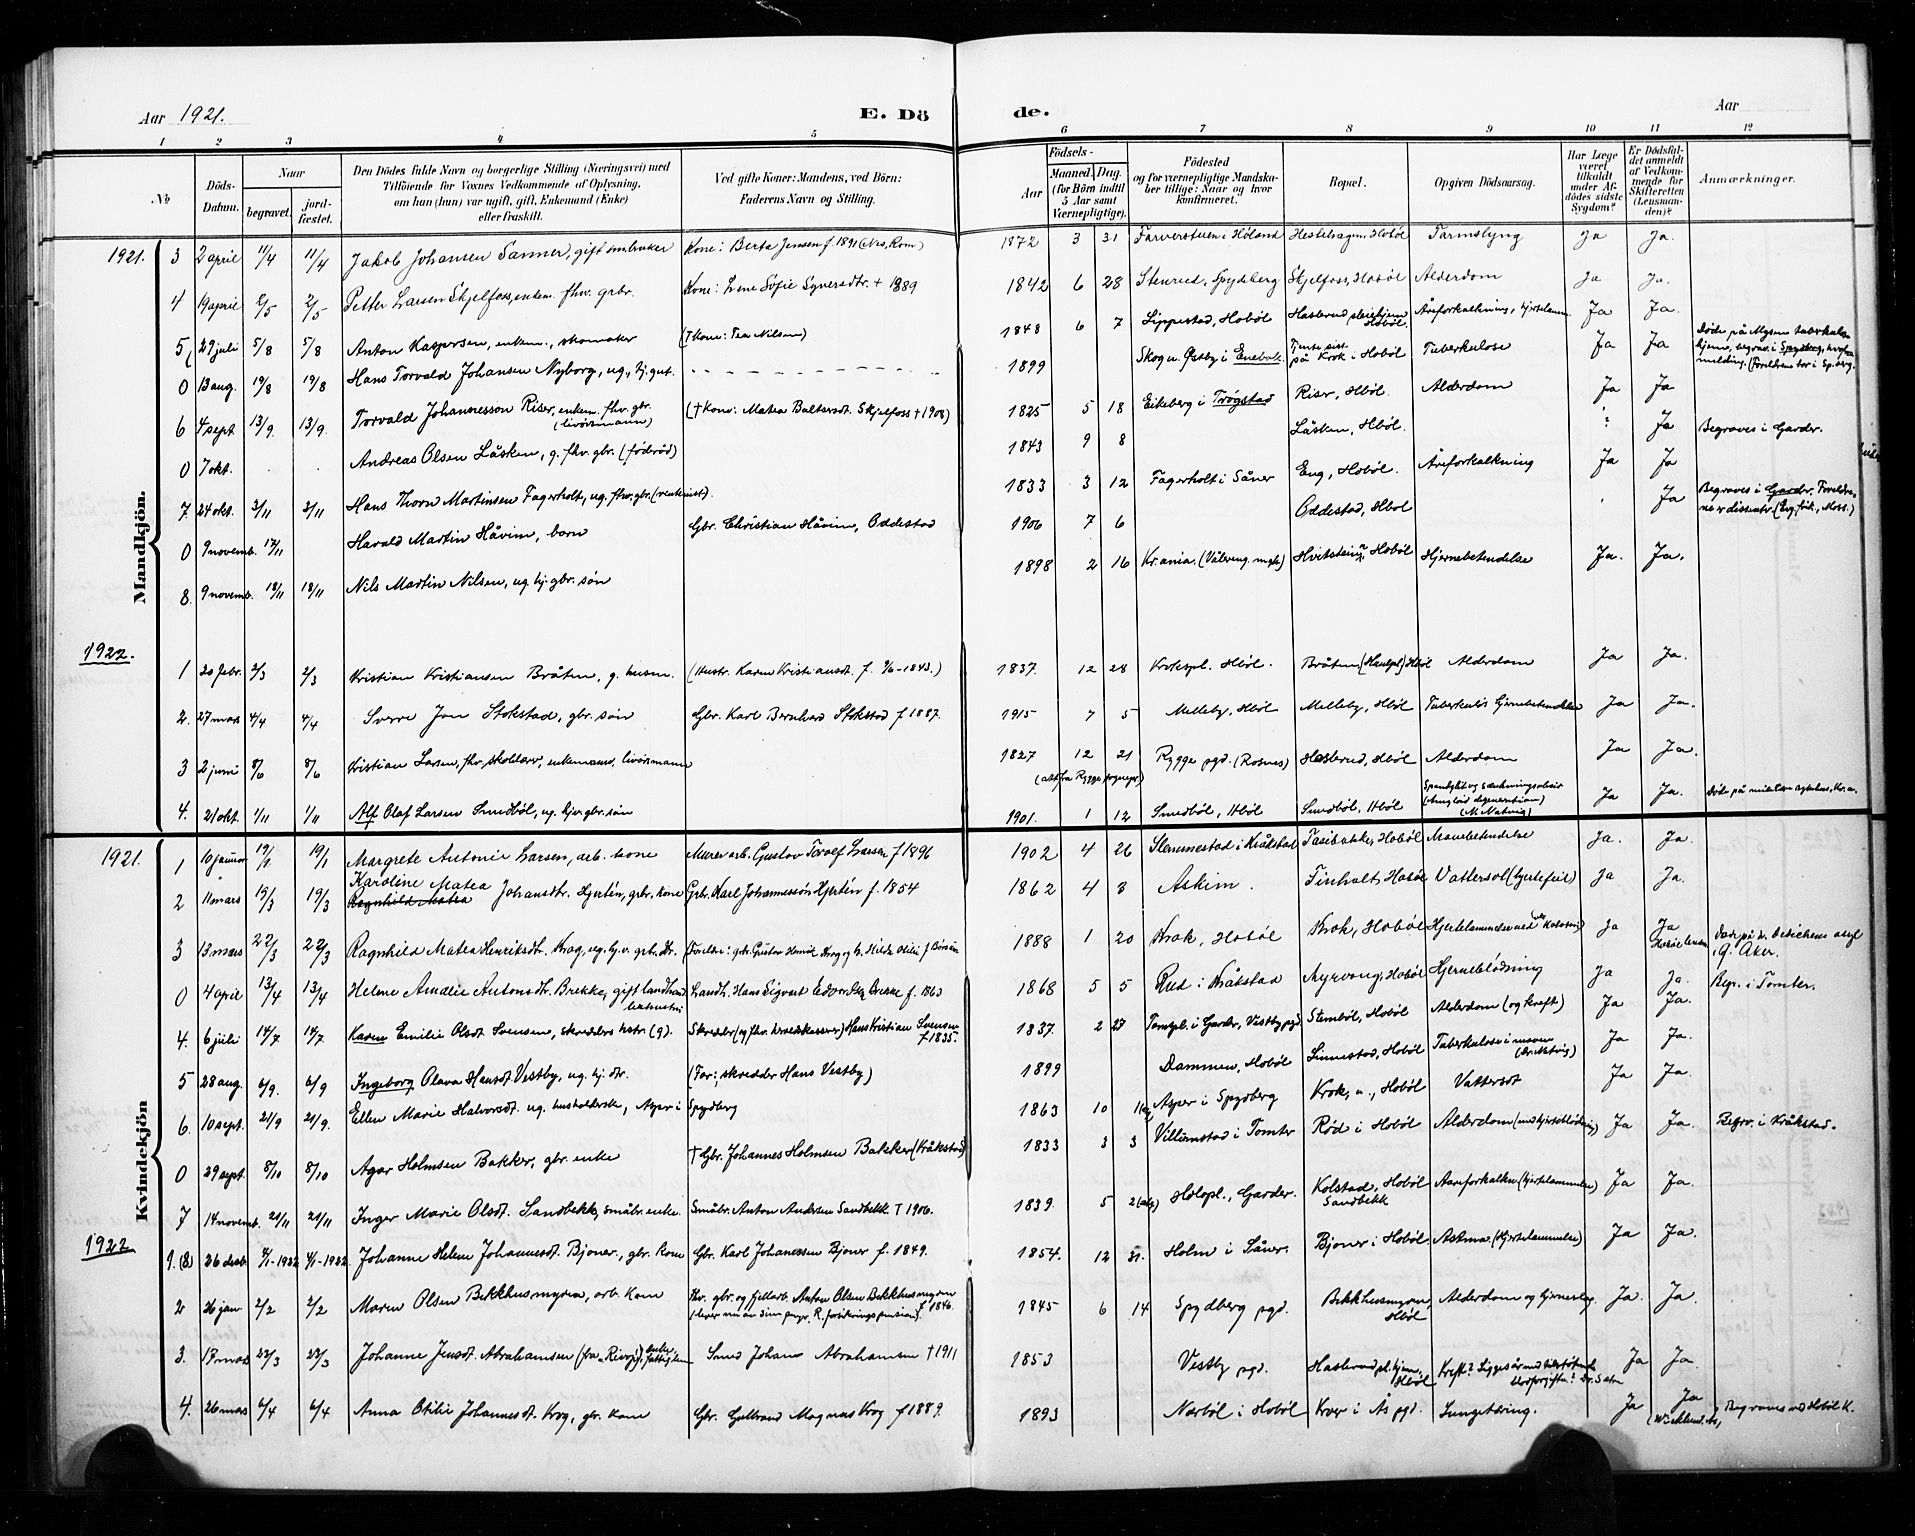 Aar 1921.
E. Dö
de.
Aar
1 2 3 4 5 6 7 8 9 10 11 12
№
Döds-Datum.
Naar
begravet.
jordfæstet.
Den Dödes fulde Navn og borgerlige Stilling (Næringsvei) med
Tilföiende for Voxnes Vedkommende af Oplysning,
om han (hun) var ugift, gift, Enkemand (Enke)
eller fraskilt.
Ved gifte Koner: Mandens, ved Börn:
Faderens Navn og Stilling.
Födsels-
Aar
Maaned, Dag.
(for Börn indtil
5 Aar samt
Værnepligtige).
Födested
og for værnepligtige Mandskaber tillige: Naar og hvor
konfirmeret.
Bopæl.
Opgiven Dödsaarsag.
Har Læge
været
tilkaldt
under Afdödes sidste
Sygdom?
Er Dödsfaldet anmeldt
af Vedkommende for
Skifteretten
(Lensmanden)?
Anmærkninger.
Mandkjön.
1921. 3 2 april 11/4 11/4 Jakob Johansen Sanner, gift Kone: Berta Jensen f. 1891 1872 3 31 i Höland Hobøl Ja Ja.
4 19 april 2/5 2/5 Petter Larsen Skjelfoss, enkem. fhv. grbr. Kone: Lene Sofie Syversdtr. † 1889 1842 6 28 Stenrud, Spydberg Skjelfoss, Hobøl Alderdom Ja Ja.
5 29 juli 5/8 5/8 Anton Kaspersen, enkem., skomaker († Kone: Nilsen) 1848 6 7 Lippestad, Hobøl Haslerud pleiehjem Hobøl. Åreforkalkning, hjertelamm. Ja Ja.
0 13 aug. 19/8 19/8 Hans Torvald Johansen Nyborg, ug., hj. gut. 1899 Skog u. Østby i Enebak. Tjente sist på Krok i Hobøl Tuberkulose Ja Ja Døde på Mysen tuberkulose hjem, begrav. i Spydberg,
6 4 sept 13/9. 13/9. Torvald Johannesson Riser, enkem. fhv. gbr. (livørsmann) († Kone: Matea Baltersdt. Skjelfoss † 1908) 1825 5 18 Eikeberg i Trøgstad Riser, Hbøl. Alderdom Ja Ja
0 7 okt. Andreas Olsen Låsken, g. fhv. gbr. (föderåd) 1843 9 8 Låsken, Hbøl. Ja Begraves i Garder.
7. 24 okt. 3/11 3/11 Hans Thorn Martinsen Fagerholt, ug. fhv. gbr. (rentenist). 1833 3 12 Fagerholt i Såner Eng, Hobøl. Åreforkalkning Ja Ja
0 9 novemb. 17/11 Harald Martin Håvim, barn Gbr. Christian Håvim, Oddestad 1906 7 6 Oddestad, Hbøl Ja Begraves i Garder. Foreldrene er dissentr.
8. 9 novemb. 18/11 18/11 Nils Martin Nilsen, ug. hj. gbr. søn 1898 2 16 Kr.ania. Hobøl Hjernebetendelse Ja. Ja.
1922.
1 20 febr. 2/3 2/3 Kristian Kristiansen Bråten, g. husm. (Hustr. Karen Kristiansdt. f. 1843.) 1837. 12 28 Krokspl. Hbøl. Bråten Hbøl Alderdom Ja Ja.
2. 27 mars 4/4 4/4 Sverre Jon Stokstad, gbr. søn Gbr. Karl Bernhard Stokstad f 1887. 1915 7 5 Melleby, Hbøl Melleby, Hbøl Tuberkuløs hjernebetendelse Ja Ja.
3 2 juni 8/6 8/6 Kristian Larsen, fhv. skolelærer, enkemann, livørsmann 1827 12 21 Rygge pgd. (Rosnes) Haslerud, Hbøl Alderdom Ja Ja.
4. 21 okt. 1/11 1/11 Alf Olaf Larsen Smedbøl, ug. hjv. gbr. søn 1901. 1 12 Smedbøl, Hbøl Smedbøl, Hbøl Ja Ja.
Kvindekjön
1921. 1 10 januar 19/1 19/1 Margrete Antonie Larsen, arb. kone Murer arb. Gustav Torolf Larsen f 1896 1902 4 26 Slemmestad i Kråkstad Hobøl Ja. Ja.
2 11 mars 15/3 19/3 Karoline Matea Johansdtr. Hjertén, grbr. kone Grbr. Karl Johannessön Hjertén f. 1854 1862 4 3 Askim. Finholt, Hobøl Vattersot (hjertefeil) Ja Ja.
Ragnhild Matea
3 13 mars 22/3 22/3 Ragnhild Matea Henriksdt. Krog, ug. hj. v. grbr. dtr. 1888 1 20 Krok, Hobøl Krok, Hobøl Ja Ja
0 4 april 13/4 13/4 Helene Amalie Antonsdtr. Brekke, gift Landh. Hans Sigvart Brekke f. 1863 1868 5 5 Rud i Kråkstad Myrvang, Hobøl Hjerneblødning Ja Ja. Begr. i Tomter.
4. 6 juli 14/7 14/7 Karen Emilie Olsdt. Svensen, skredders hstr. (g). Skredder (og fhv. herredskasserer) Hans Kristian Svensen f 1835. 1837. 2 27 i Garder, Vestby pgd. Stenbøl, Hobøl Alderdom (og kreft) Ja Ja.
5 28 aug. 6/9. 6/9 Ingeborg Olava Hansdt. Vestby, ug. hj. dtr. (Far: skredder Hans Vestby) 1899 Dammen, Hobøl Hobøl Tuberkulose Ja Ja.
6. 10 sept. 21/9 21/9. Ellen Marie Halvorsdt. ug. husholderske, Asper i Spydberg 1863 10 Asper i Spydberg Krok, Hobøl Vattersot Ja Ja.
0 29 sept. 8/10 8/10 Agar Holmsen Bakker, gbr. enke † Gbr. Johannes Holmsen Bakker (Kråkstad) 1833 3 3 Villimstad i Tomter Rød i Hobøl Alderdom Ja Ja. Begr. i Kråkstad.
7 14 novemb. 21/11 21/11 Inger Marie Olsdt. Sandbekk, småbr. enke. Småbr. Anton Andersen Sandbekk † 1906. 1839. 5 2 Holspl., Garder. Kolstad, Hobøl Sandbekk (hjertelammelse) Ja Ja.
1922
1. (8) 26 desb. 4/1-1922 4/1-1922. Johanne Helene Johannesdt. Bjoner, gbr. kone Gbr. Karl Johannessen Bjoner f. 1849. 1854. 12 31. Holm i Såner. Bjoner i Hobøl Astma. (Hjertelammelse) Ja Ja.
2 26 jan. 2/2 2/2 Maren Olsen Bekkhusmyren, arb. kone Fhv. gbr. og fjellarb. Anton Olsen Bekkhusmyren f 1846. 1845 6 14 Spydberg pgd. Bekkhusmyren, Hbøl Alderdom og Ja. Ja
3. 17 mars 23/3 23/3 Johanne Jensdt. Abrahamsen Smed Johans Abrahamsen † 1911 1853 Vestby pgd. Haslerud pl.hjem, Hbøl Kreft? Ja Ja.
4. 26 mars 6/4 6/4 Anna Otilie Johannesdt. Krog, gbr. kone Gbr. Gulbrand Magnus Krog f 1889. 1893 Nærbøl i Hobøl Kroer i Ås pgd. Lungetæring. Ja Ja Begraves ved Hobøl K.